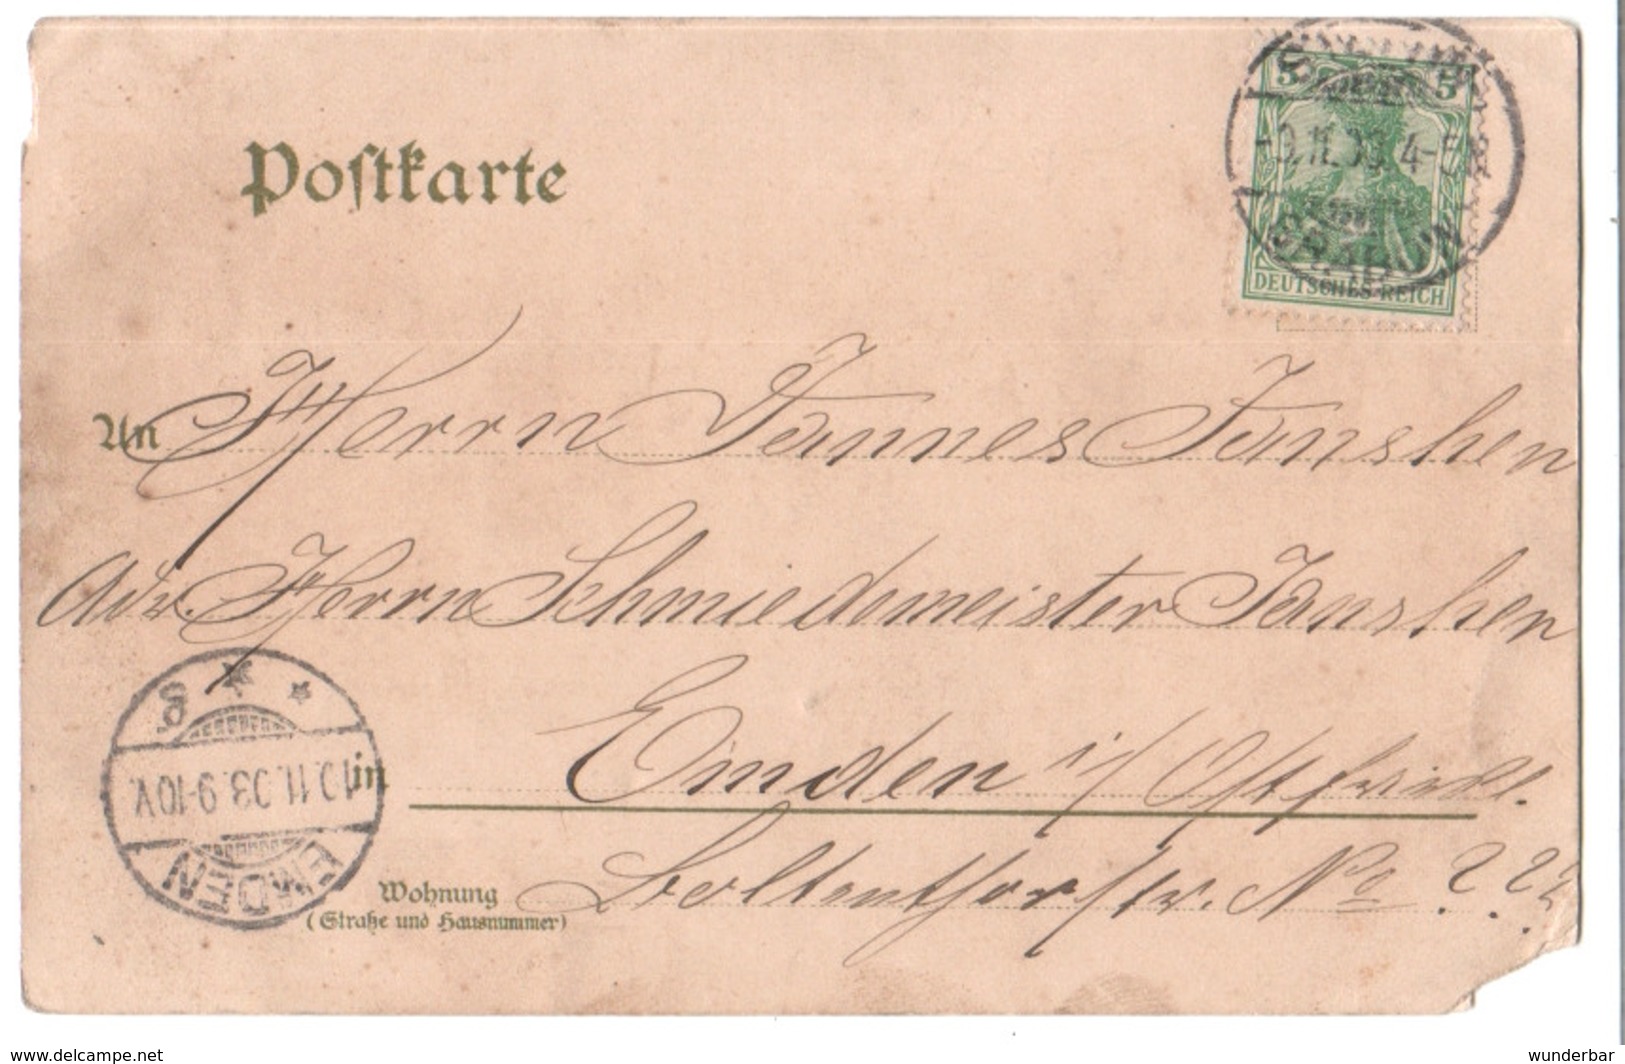 Postkarte
5 5
9.11.03 4-5
DEUTSCHES REICH
An Herrn Jannes Janshen
Adr. Herrn Schmiedemeister Janshen
Emden i/ Ostfriesl.
in
10.11.03.9-10V.
EMDEN
Boltenthorstr. No ? ? ?
Wohnung
(Straße und Hausnummer)
www.delcampe.net
wunderbar